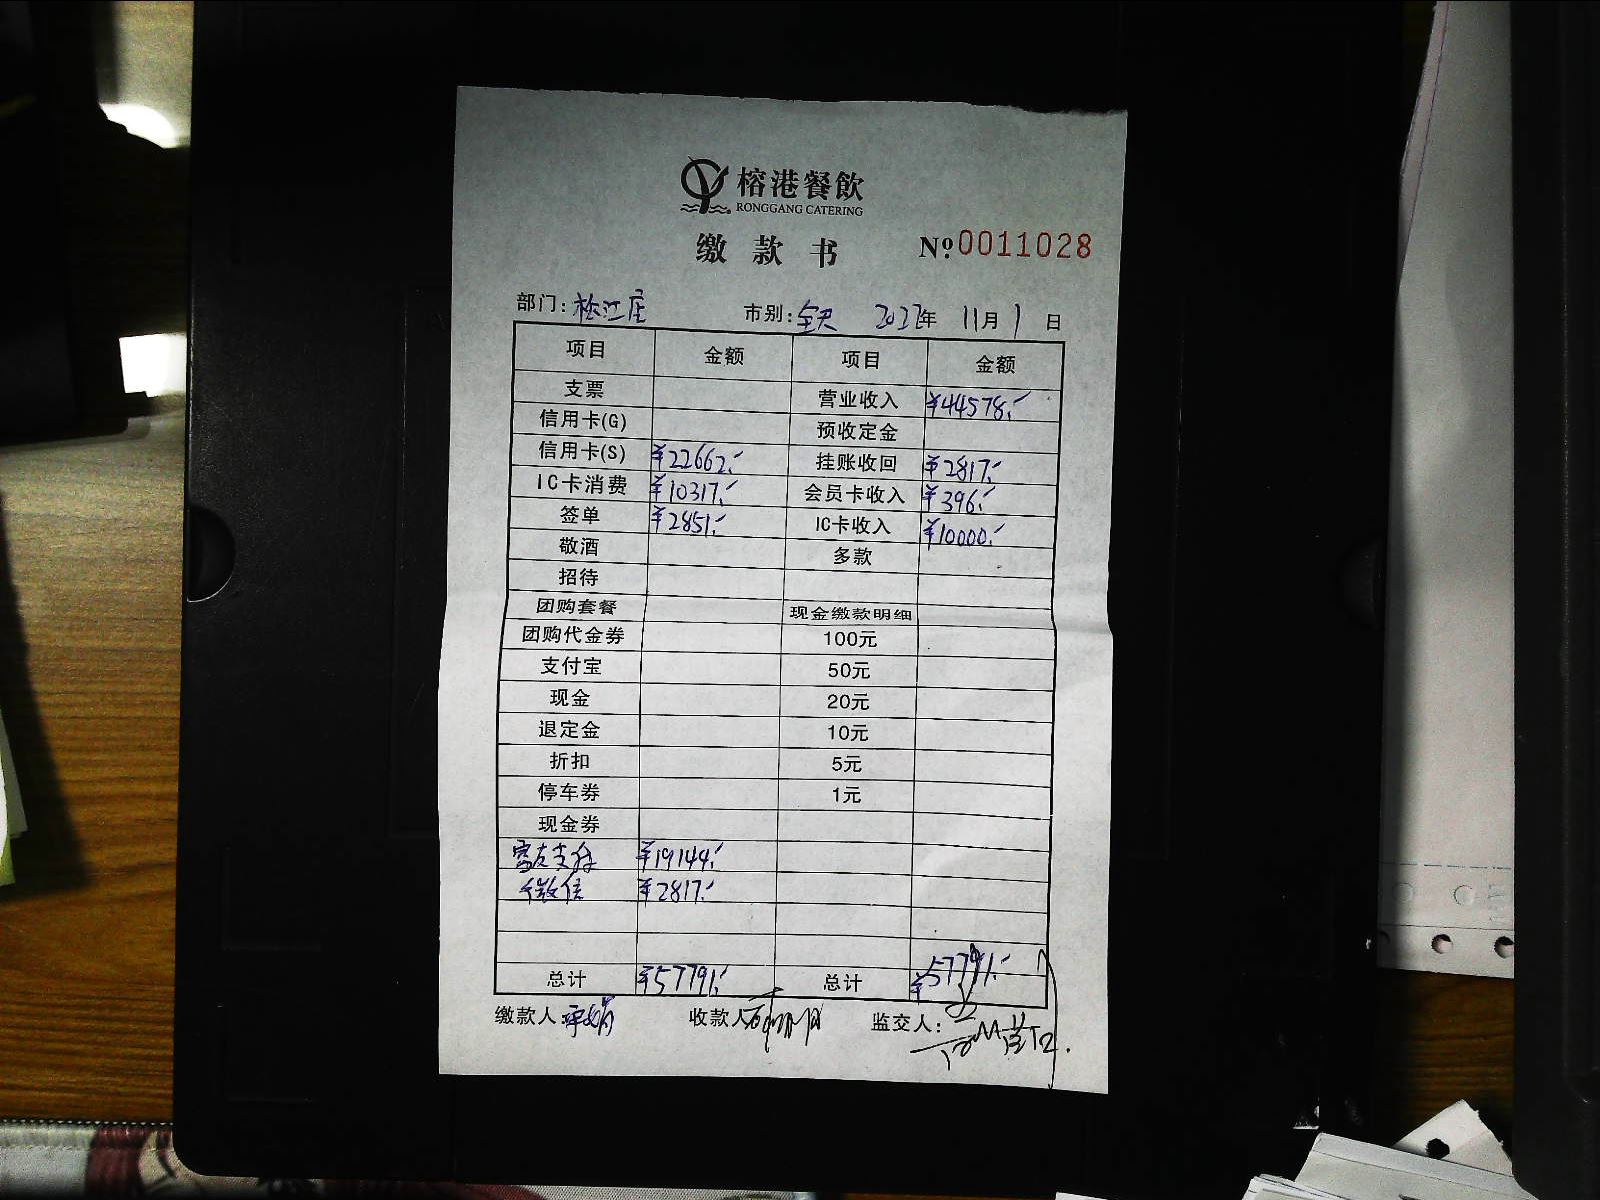 榕港餐飲
RONGGANG CATERING
缴款书 №0011028
部门: 松江店 市别: 全天 2022年 11月 1 日
项目 金额 项目 金额
支票 营业收入 ¥44578.-
信用卡(G) 预收定金
信用卡(S) ¥22662.- 挂账收回 ¥2817.-
IC卡消费 ¥10317.- 会员卡收入 ¥396.-
签单 ¥2851.- IC卡收入 ¥10000.-
敬酒 多款
招待
团购套餐 现金缴款明细
团购代金券 100元
支付宝 50元
现金 20元
退定金 10元
折扣 5元
停车券 1元
现金券
富友支付 ¥19144.-
微信 ¥2817.-
总计 ¥57791.- 总计 ¥57791.-
缴款人 收款人 监交人: